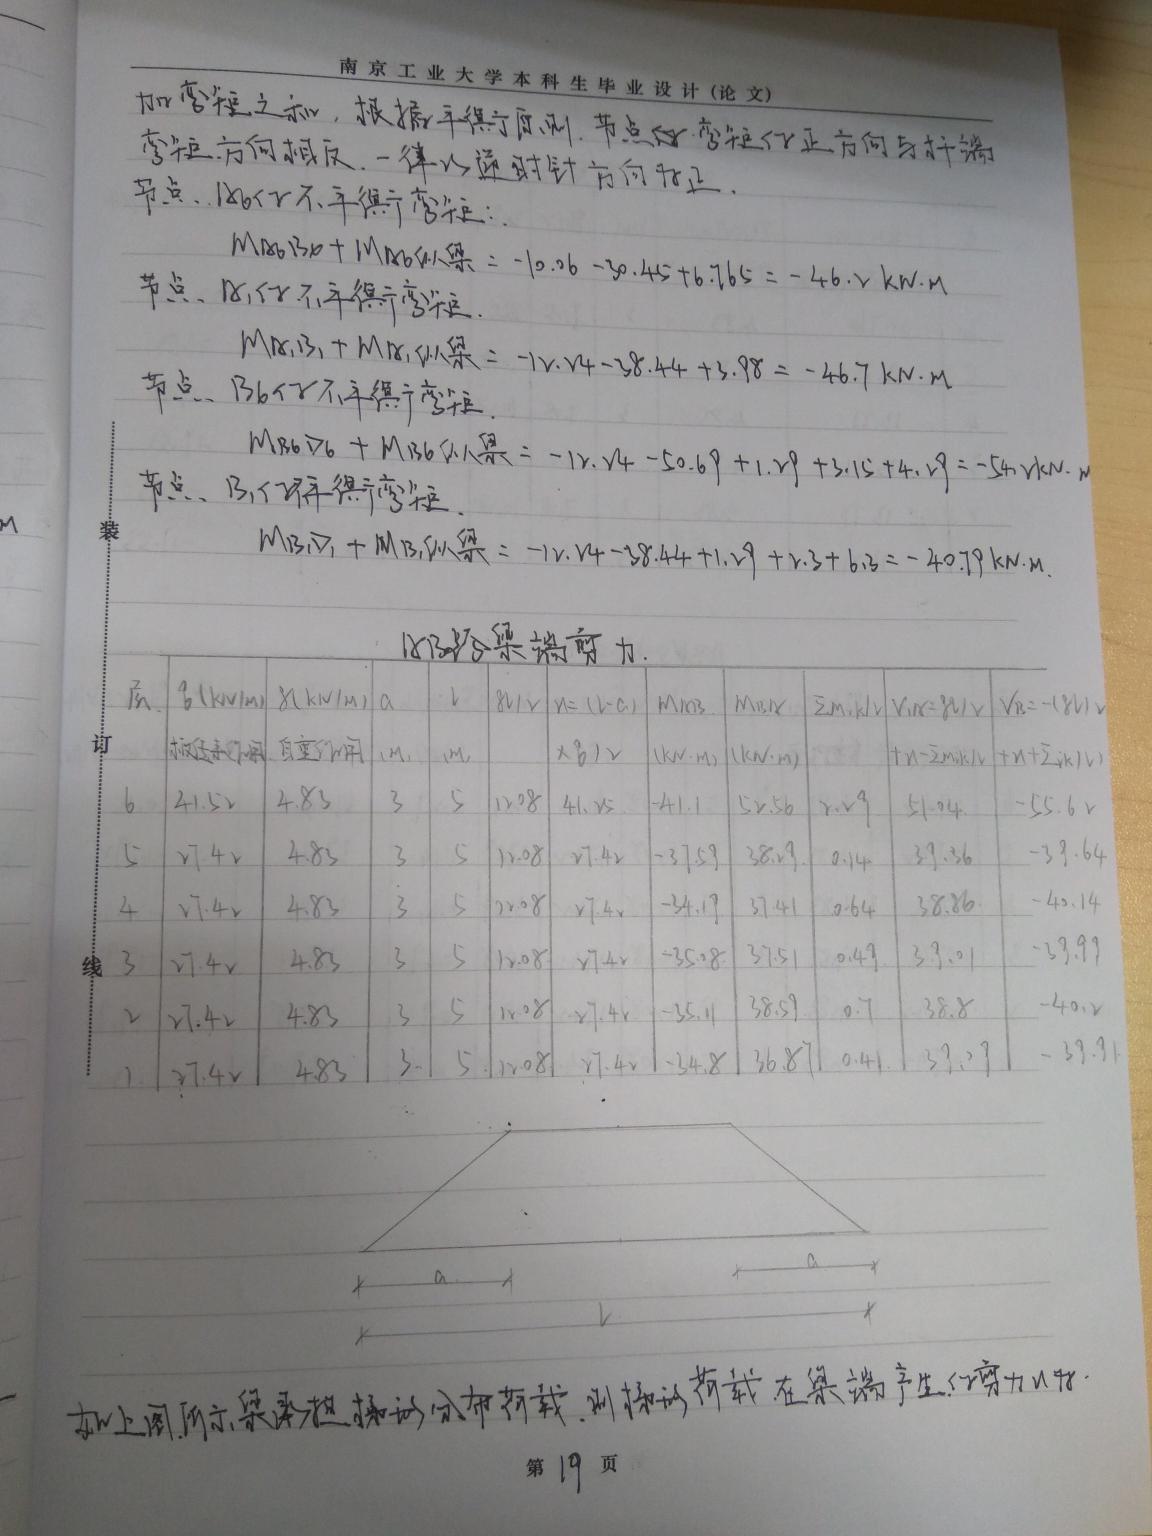 南京工业大学本科生毕业设计(论文)
加弯矩之和，根据平衡原则．节点的弯矩的正方向与杆端
弯矩方向相反．一律以逆时针方向为正．
节点、A6的不平衡弯矩：
MA6B6+MA6纵梁=-10.06-30.45+6.765=-46.2KN·M
节点、A1的不平衡弯矩．
MA1B1+MA1纵梁=-12.24-38.44+3.98=-46.7KN·M
节点、B6的不平衡弯矩．
MB6D6+MB6纵梁=-12.24-50.69+1.29+3.15+4.29=-54.2KN·M
节点、B1的不平衡弯矩．
MB1D1+MB1纵梁=-12.24-38.44+1.29+2.3+6.3=-40.79KN·M.
AB跨梁端剪力．
层 q(KN/M) g(KN/M) a l gl/2 u=(l-a) MAB MBA ΣMik/l V1A=gl/2 VB=-(gl/2
板传来作用 自重作用 (M) (M) ×q/2 (KN·M) (KN·M) +u-ΣMik/l +u+Σik/l)
6 41.52 4.83 3 5 12.08 41.25 -41.1 52.56 2.29 51.04 -55.62
5 27.42 4.83 3 5 12.08 27.42 -37.59 38.29 0.14 39.36 -39.64
4 27.42 4.83 3 5 12.08 27.42 -34.19 37.41 0.64 38.86 -40.14
3 27.42 4.83 3 5 12.08 27.42 -35.08 37.51 0.49 39.01 -39.99
2 27.42 4.83 3 5 12.08 27.42 -35.11 38.59 0.7 38.8 -40.2
1 27.42 4.83 3 5 12.08 27.42 -34.8 36.87 0.41 39.09 -39.91
a a
l
如上图所示，梁承担梯形分布荷载．则梯形荷载在梁端产生的剪力u为．
第19页
装
订
线
M